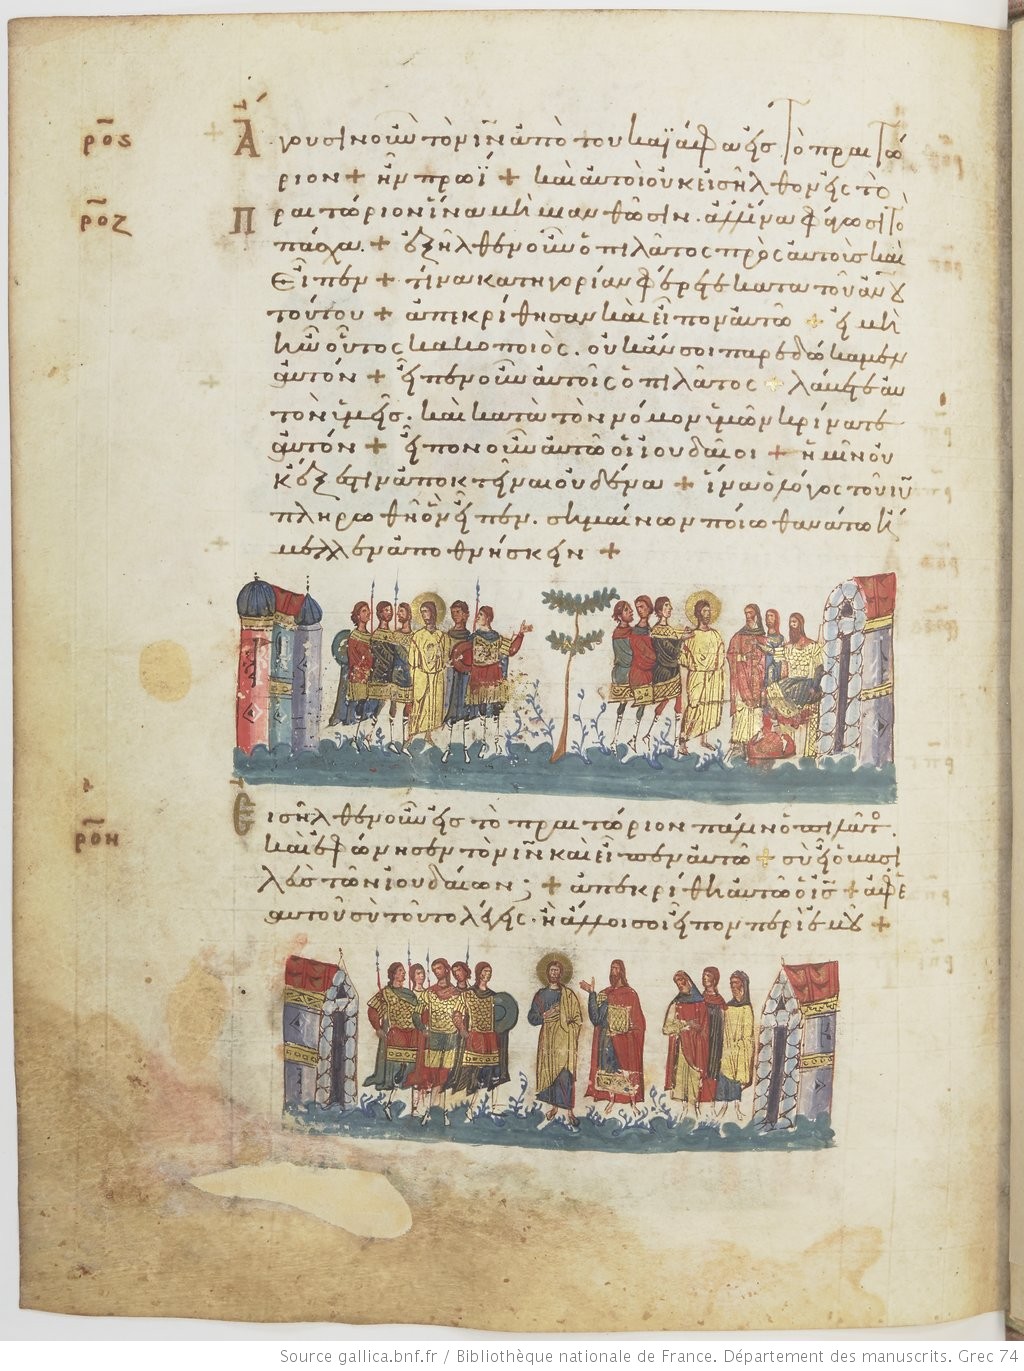 ρος
Ἄγουσιν οὖν τὸν ιν ἀπὸ του καϊάφα εἰς τὸ πραιτώ
ριον + ἦν πρωῒ + καὶ αὐτοὶ οὐκ εἰσῆλθον εἰς τὸ
ροζ
Πραιτώριον ἵνα μὴ μιανθῶσιν. ἀλλ ἵνα φάγωσι τὸ
πάσχα. + ἐξῆλθεν οὖν ὁ πιλᾶτος πρὸς αὐτοὺς καὶ
εἶπεν + τίνα κατηγορίαν φέρετε κατα τοῦ ανου
τούτου + ἀπεκρίθησαν καὶ εἶπον αὐτῶ + εἰ μὴ
ἦν οὗτος κακοποιὸς. οὐκ ἄν σοι παρεδώκαμεν
αὐτόν + εἶπεν οὖν αὐτοῖς ὁ πιλᾶτος + λάβετε αὐ
τὸν ὑμεῖς. καὶ κατὰ τὸν νόμον ὑμῶν κρίνατε
αὐτόν + εἶπον οὖν αὐτῶ οἱ ἰουδαῖοι + ἡμῖν οὐ
κ ἔξεστιν ἀποκτεῖναι οὐδένα + ἵνα ὁ λόγος τοῦ ιυ
πληρωθῆ ὃν εἶπεν. σημαίνων ποίω θανάτω ἤ
μελλεν ἀποθνήσκειν +
ροη
Εἰσῆλθεν οὖν εἰς τὸ πραιτώριον πάλιν ὁ πιλᾶτος.
καὶ ἐφώνησεν τὸν ιν καὶ εἶπεν αὐτῶ + σὺ εἶ ὁ βασι
λεὺς τῶν ἰουδαίων; + ἀπεκρίθη αὐτῶ ὁ ις + ἀφ ἑ
αυτοῦ σὺ τοῦτο λέγεις. ἢ ἄλλοι σοι εἶπον περὶ ἐμοῦ +
Source gallica.bnf.fr / Bibliothèque nationale de France. Département des manuscrits. Grec 74